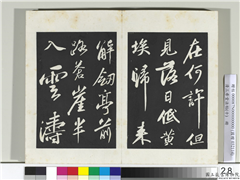 在何許但
見落日低黃
埃歸来
解劍亭前
路蒼崖半
入雲濤
28